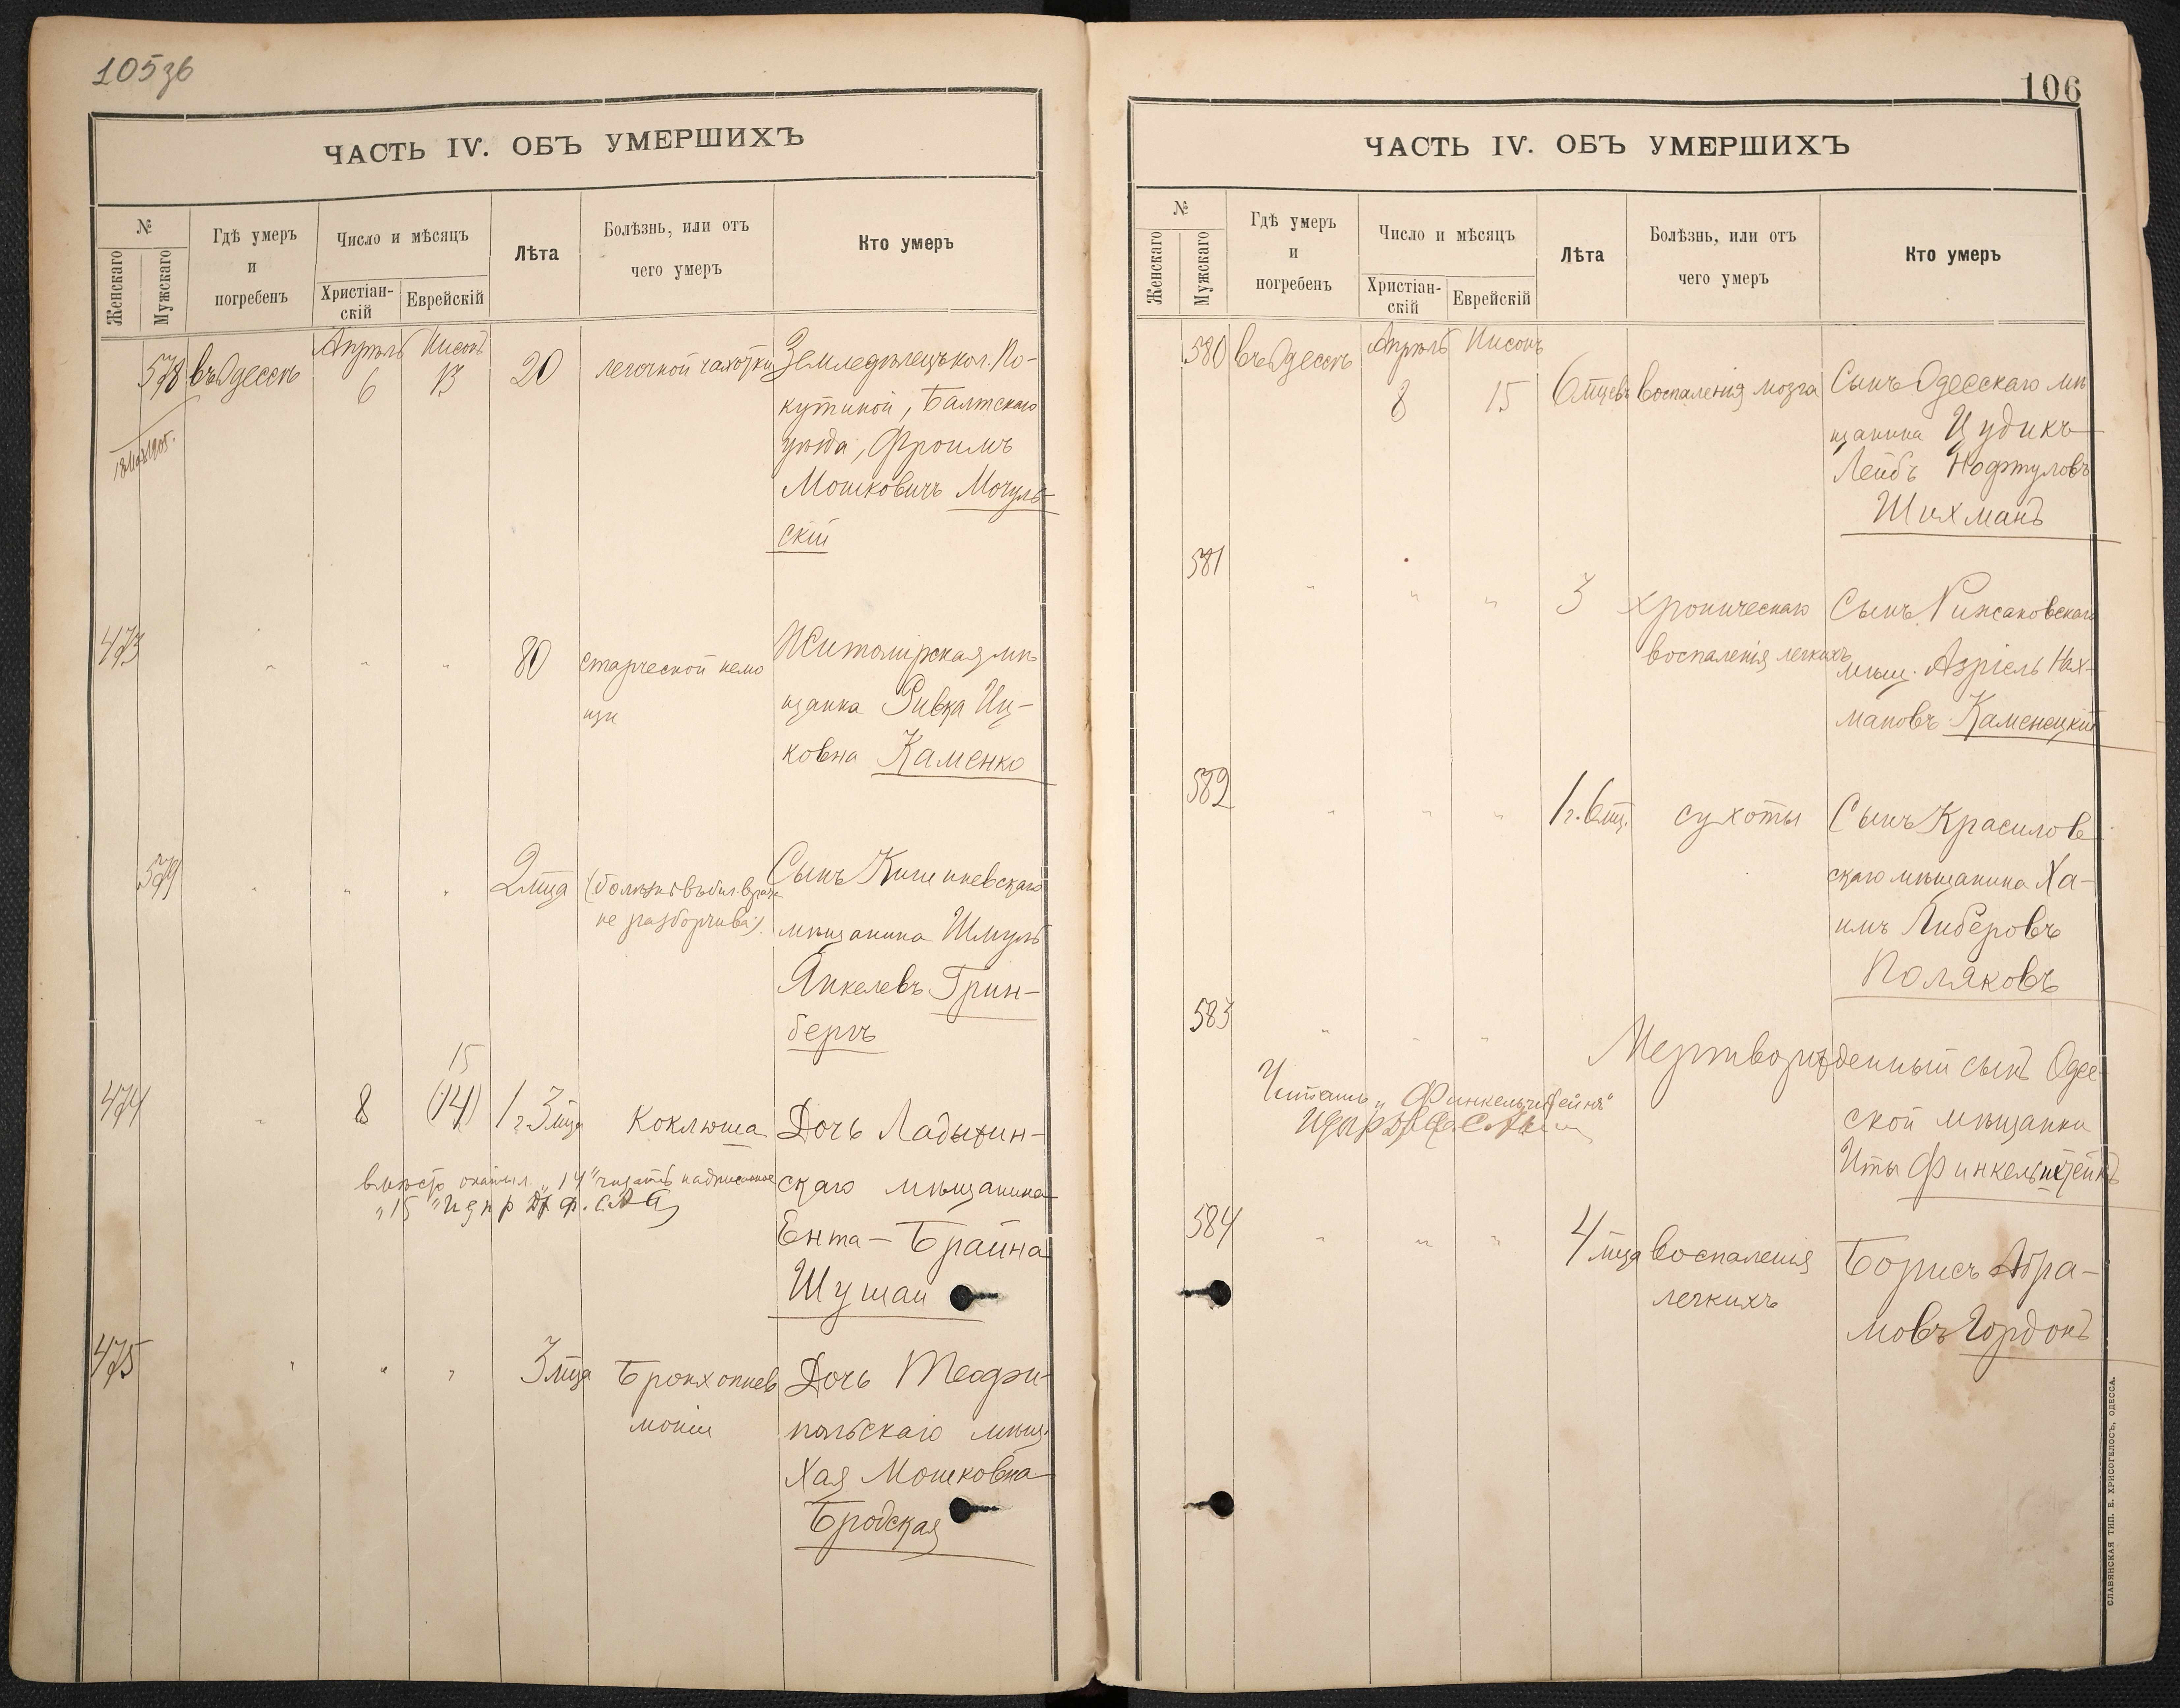 105зв
ЧАСТЬ IV. ОБЪ УМЕРШИХЪ
№
Женскаго
Мужскаго
Гдѣ умеръ
и
погребенъ
Число и мѣсяцъ
Христіан-
скій
Еврейскій
Лѣта
Болѣзнь, или отъ
чего умеръ
Кто умеръ
578 въ Одессѣ Апрѣль 6 Нисонъ 13 20 легочной чахотки Земледѣлецъ кол. По-
кутиной, Балтскаго
уѣзда, Фроимъ
Мошковичъ Мочуль-
скій
473 " " " 80 старческой немо
щи
Житомирская мѣ
щанка Ривка Иц-
ковна Каменко
579 " " " 2 мца (болѣзнь въ бил. врача
не разборчива).
Сынъ Кишиневскаго
мѣщанина Шмуль
Янкелевъ Грин-
бергъ
15
474 " 8 (14) 1 г. 3 мца Коклюша Дочь Ладыжин-
скаго мѣщанина
Ента-Брайна
Шушан
вмѣсто "14" читать надписанное
"15"
475 " " " 3 мца Бронхопнев
моніи
Дочь Теофи-
польскаго мѣщ.
Хая Мошковна
Бродская
106
ЧАСТЬ IV. ОБЪ УМЕРШИХЪ
№
Женскаго
Мужскаго
Гдѣ умеръ
и
погребенъ
Число и мѣсяцъ
Христіан-
скій
Еврейскій
Лѣта
Болѣзнь, или отъ
чего умеръ
Кто умеръ
580 въ Одессѣ Апрѣль 8 Нисонъ 15 6 мцевъ воспаленія мозга Сынъ Одесскаго мѣ
щанина Цудикъ-
Лейбъ Нофтуловъ
Шихманъ
581 " " " 3 хроническаго
воспаленія легкихъ
Сынъ
мѣщ. Азріель Нах-
мановъ Каменецкій
582 " " " 1 г. 6 мц. сухоты Сынъ Красилов
скаго мѣщанина Ха-
имъ Либеровъ
Поляковъ
583 " " " Мертворожденный сынъ Одес-
ской мѣщанки
Иты Финкельштейнъ
Читать "Финкельштейнъ"
584 " " " 4 мца воспаленія
легкихъ
Борисъ Абра-
мовъ Гордонъ
СЛАВЯНСКАЯ ТИП. Е. ХРИСОГЕЛОСЪ, ОДЕССА.